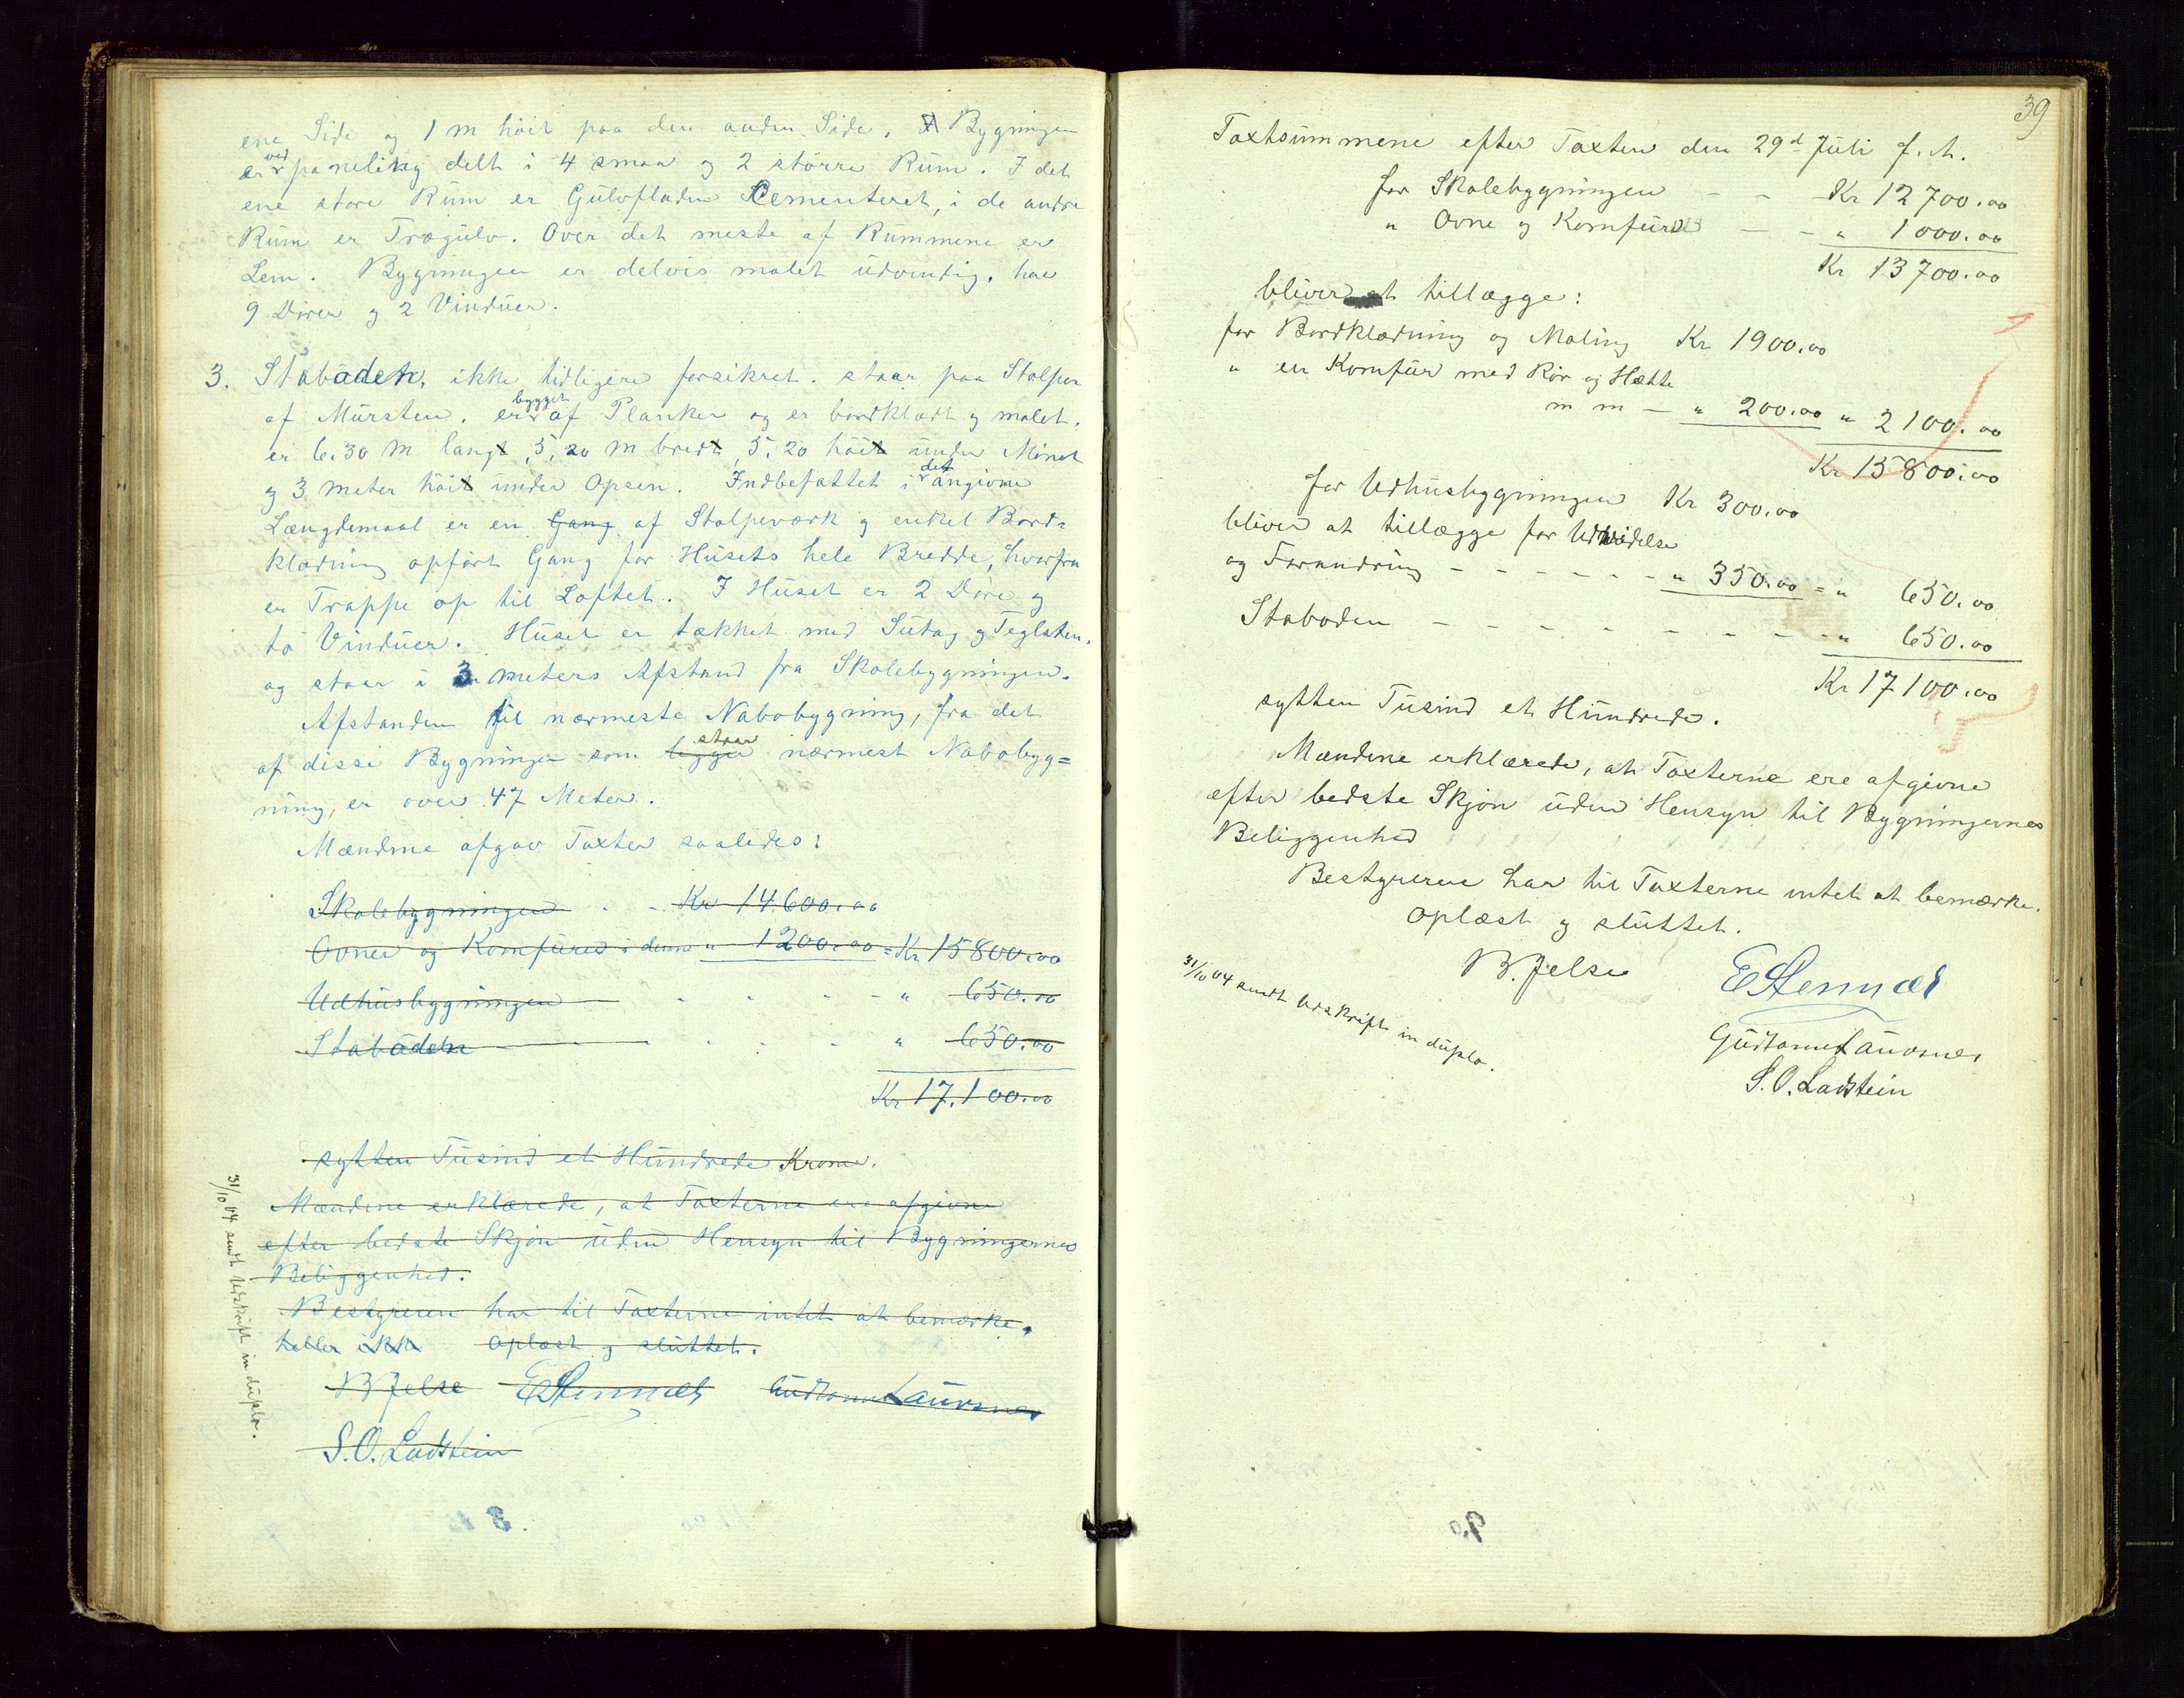 ene Side og 1 m höit paa den anden Side. Bygningen
er ved paneling delt i 4 smaa og 2 större Rum. I det
ene store Rum er Gulvfladen Cementeret, i de andre
Rum er Trægulv. Over det meste af Rummene er
Lem. Bygningen er delvis malet udvendig, har
9 Dörer og 2 Vinduer.
3. Stabuden, ikke tidligere forsikret. staar paa Stolper
af Mursten. er bygget af Planker og er bordklædt og malet.
er 6.30 m langt, 5,20 m bredt, 5,20 höit under Mönet
og 3 meter höit under Opsen. Indbefattet i det angivne
Længdemaal er en Gang af Stolpeværk og enkel Bord=
klædning opfört Gang for Husets hele Bredde, hvorfra
er Trappe op til Loftet. I Huset er 2 Döre og
to Vinduer. Huset er tækket med Sutag og Teglsten,
og staar i 3 meters Afstand fra Skolebygningen.
Afstanden til nærmeste Nabobygning, fra det
af disse Bygninger som ligger staar nærmest Nabobyg=
ning, er over 47 Meter.
Mændene afgav Taxter saaledes:
Skolebygningen - - Kr 14.600.00
Ovner og Komfurer i denne " 1200.00 = Kr 15800.00
Udhusbygningen - - - - " 650.00
Stabuden - - - - " 650.00
Kr 17.100.00
sytten Tusind et Hundrede Krone.
Mændene erklærede, at Taxterne ere afgivne
efter bedste Skjön uden Hensyn til Bygningernes
Beliggenhed.
Bestyreren har til Taxterne intet at bemærke.
heller ikke Oplæst og sluttet.
B Jelse E Stennes Laursnes
S. O. Ladstein
31/10 04 sendt Udskrift in duplo.
39
Taxtsummene efter Taxten den 29d Juli f. A.
for Skolebygningen - - Kr 12700.00
" Ovne og Komfure - - " 1000.00
Kr 13700.00
bliver at tillægge:
for Bordklædning og Maling Kr 1900.00
" en Komfur med Rör og Hætte
m m - " 200.00 " 2100.00
Kr 15800.00
for Udhusbygningen Kr 300.00
bliver at tillægge for Udvidelse
og Forandring - - - - - - " 350.00 = " 650.00
Staboden - - - - - - - - - " 650.00
Kr 17100.00
sytten Tusind et Hundrede.
Mændene erklærede, at Taxterne ere afgivne
efter bedste Skjön uden Hensyn til Bygningernes
Beliggenhed
Bestyreren har til Taxterne intet at bemærke.
Oplæst og sluttet.
B. Jelse E Stennes
31/10 04 sendt Udskrift in duplo.
Laursnes
S. O. Ladstein